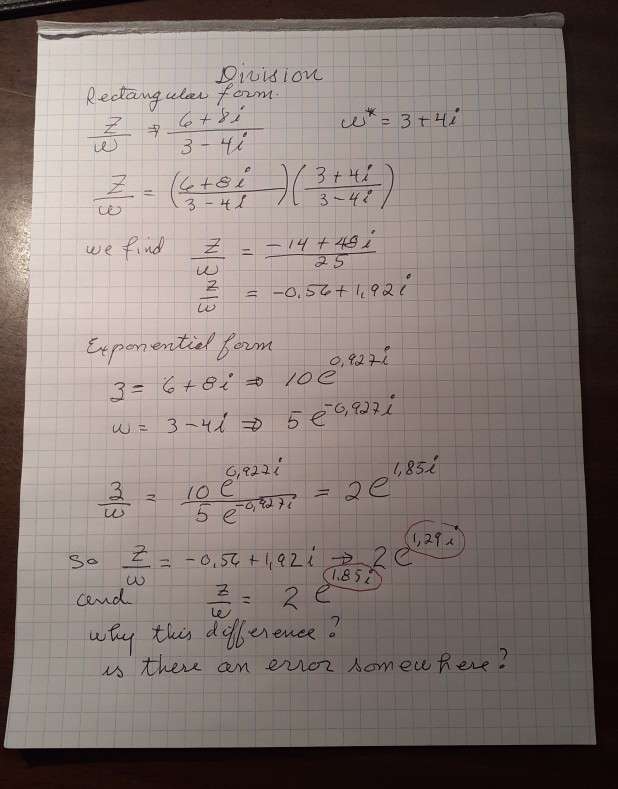 Division
Rectangular form.
z/w ⇒ (6+8i)/(3-4i) w* = 3+4i
z/w = ((6+8i)/(3-4i))((3+4i)/(3-4i))
we find z/w = (-14+48i)/25
z/w = -0,56+1,92i
Exponential form
z = 6+8i ⇒ 10e^0,927i
w = 3-4i ⇒ 5e^-0,927i
z/w = 10e^0,927i / 5e^-0,927i = 2e^1,85i
so z/w = -0,56+1,92i → 2e^1,29i
and z/w = 2e^1.85i
why this difference?
is there an error somewhere?